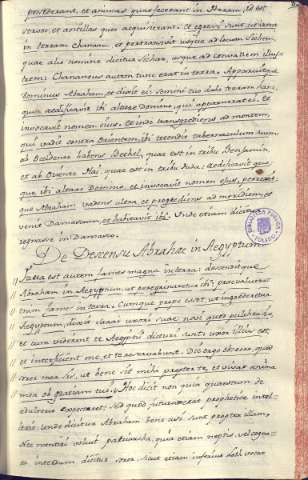 possederant, et animas quas fecerant in Haran, id est
servos, et ancillas quos acquisierant. et egressi sunt ut irent
in terram Chanaan. et pertransivit usque ad locum Sichem,
quae alio nomine dicitur Sichar, usque ad convallem illus-
trem: Chananaeus autem tunc erat in terra. Apparuitque
Dominus Abrahae, et dixit ei: semini tuo dabo terram hanc,
qui aedificavit ibi altare Domino, qui apparuerat ei. et
invocavit nomen eius. et inde transgrediens ad montem,
qui erat contra Orientem, ibi tetendit tabernaculum suum
ab Occidente habens Bethel, quae est in tribu Benjamin,
et ab Oriente Hai, quae est in tribu Juda. Aedificavit que-
que ibi altare Domino, et invocavit nomen eius, perrexit-
que Abraham vadens ultra, et progrediens ad meridiem, et
venit Damascum, et habitavit ibi. Unde etiam dicitur
regnasse in Damasco.
De Descensu Abrahae in Aegyptum.
Facta est autem fames magna in terra: descenditque
Abraham in Aegyptum, ut peregrinaretur ibi: praevaluerat
enim fames in terra. Cumque prope esset ut ingrederetur
Aegyptum, dixit Sarai uxori suae: novi quod pulchra sis,
et cum viderint te Aegyptii dicturi sunt: uxor illius est,
et interficient me, et te reservabunt. Dic ergo obsecro, quod
soror mea sis, ut bene sit mihi propter te, et vivat anima
mea ob gratiam tui. Hoc dicit non quia quaestum de
adulterio expectaret; sed quod futurum erat prophetice intel-
lexit: unde dicitur Abraham bene usi sunt propter illam,
Nec mentiri voluit patriarcha, quia etiam neptis, vel cogna-
ta interdum dicitur soror. sicut etiam inferius Loth vocat